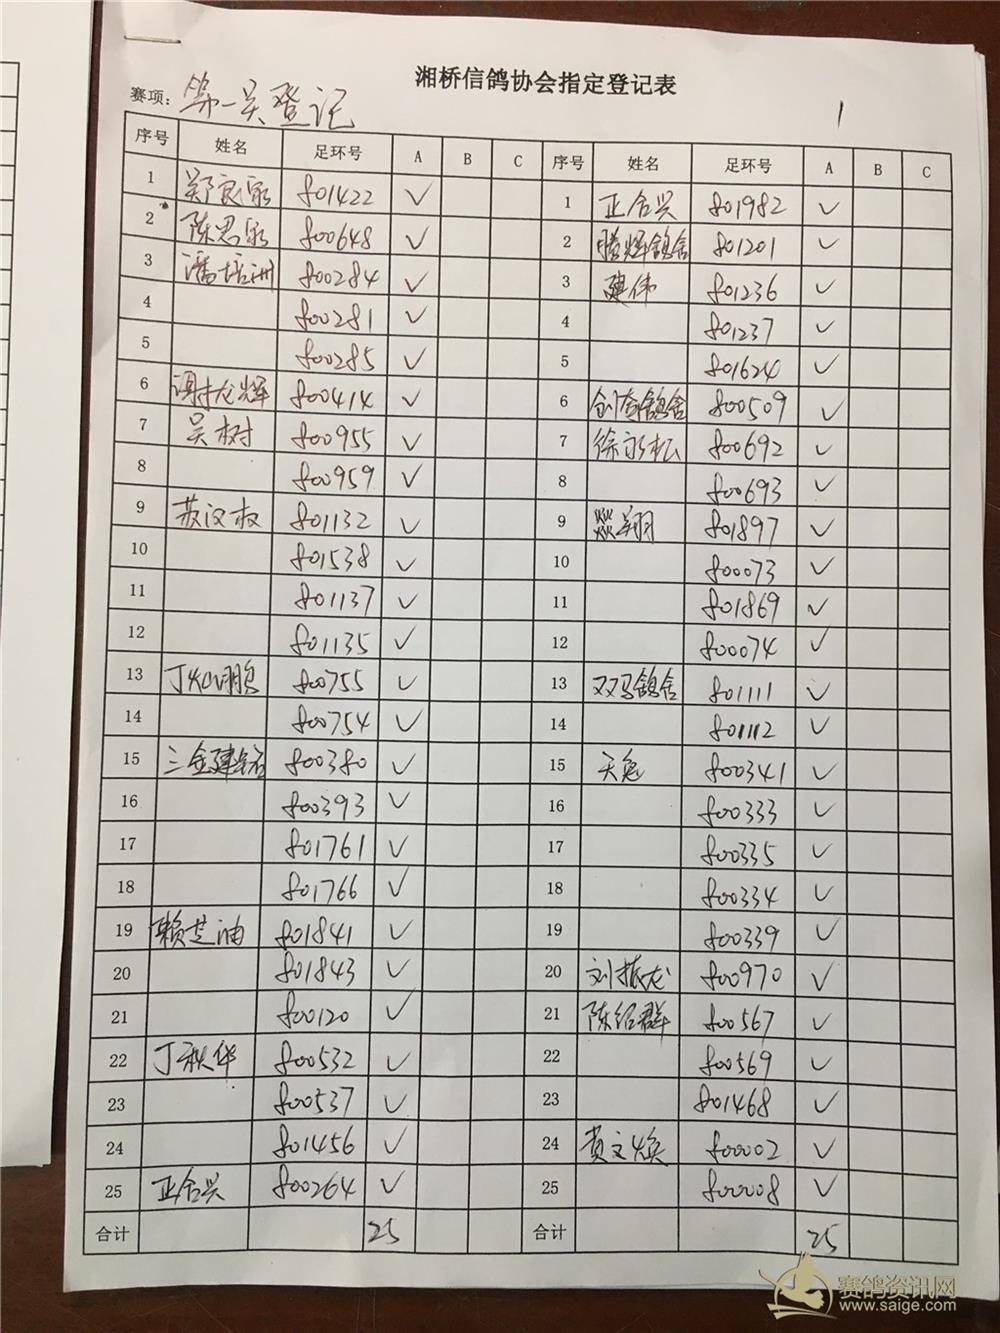 湘桥信鸽协会指定登记表
赛项：第一关登记
1
序号 姓名 足环号 A B C 序号 姓名 足环号 A B C
1 郑良泉 801422 ✓ 1 正合兴 801982 ✓
2 陈思泉 800648 ✓ 2 腾辉鸽舍 801201 ✓
3 潘培洲 800284 ✓ 3 建伟 801236 ✓
4 800281 ✓ 4 801237 ✓
5 800285 ✓ 5 801624 ✓
6 谢龙辉 800414 ✓ 6 鸽舍 800509 ✓
7 吴树 800955 ✓ 7 徐永松 800692 ✓
8 800959 ✓ 8 800693 ✓
9 苏汉权 801132 ✓ 9 燚翔 801897 ✓
10 801538 ✓ 10 800073 ✓
11 801137 ✓ 11 801869 ✓
12 801135 ✓ 12 800074 ✓
13 丁 鹏 800755 ✓ 13 双马鸽舍 801111 ✓
14 800754 ✓ 14 801112 ✓
15 三金建 800380 ✓ 15 天意 800341 ✓
16 800393 ✓ 16 800333 ✓
17 801761 ✓ 17 800335 ✓
18 801766 ✓ 18 800334 ✓
19 赖芝油 801841 ✓ 19 800339 ✓
20 801843 ✓ 20 刘振龙 800970 ✓
21 800120 ✓ 21 陈绍群 800567 ✓
22 丁秋华 800532 ✓ 22 800569 ✓
23 800537 ✓ 23 801468 ✓
24 801456 ✓ 24 黄文焕 800002 ✓
25 正合兴 800264 ✓ 25 800008 ✓
合计 25 合计 25
赛鸽资讯网
www.saige.com